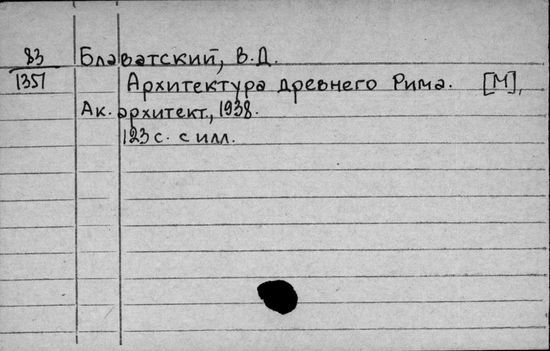 83 Блаватский, В.Д.
1351 Архитектура древнего Рима. [М],
Ак. архитект., 1938.
123 с. с илл.